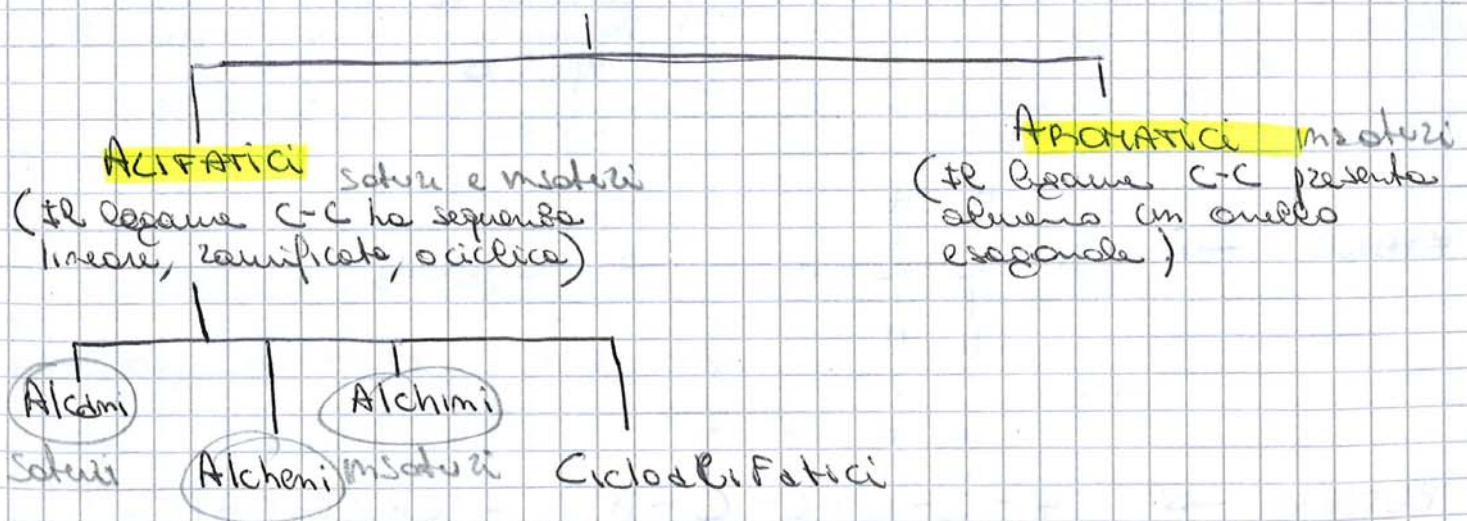 ALIFATICI saturi e insaturi
(Il legame C-C ha sequenza
lineare, ramificata, o ciclica)
AROMATICI insaturi
(Il legame C-C presenta
almeno un anello
esagonale)
Alcani
Alchini
saturi
Alcheni
insaturi
Cicloalifatici